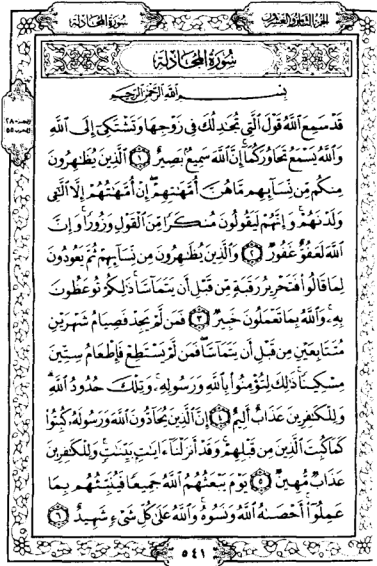 سُورَةُ المُجَادلة
الجزء الثامن والعشرون
سُورَةُ المُجَادلة
بِسْمِ اللَّهِ الرَّحْمَٰنِ الرَّحِيمِ
قَدْ سَمِعَ اللَّهُ قَوْلَ الَّتِي تُجَادِلُكَ فِي زَوْجِهَا وَتَشْتَكِي إِلَى اللَّهِ
وَاللَّهُ يَسْمَعُ تَحَاوُرَكُمَا إِنَّ اللَّهَ سَمِيعٌ بَصِيرٌ ١ الَّذِينَ يُظَاهِرُونَ
مِنكُم مِّن نِّسَائِهِم مَّا هُنَّ أُمَّهَاتِهِمْ إِنْ أُمَّهَاتُهُمْ إِلَّا الَّتِي
وَلَدْنَهُمْ وَإِنَّهُمْ لَيَقُولُونَ مُنكَرًا مِّنَ الْقَوْلِ وَزُورًا وَإِنَّ
اللَّهَ لَعَفُوٌّ غَفُورٌ ٢ وَالَّذِينَ يُظَاهِرُونَ مِن نِّسَائِهِمْ ثُمَّ يَعُودُونَ
لِمَا قَالُوا فَتَحْرِيرُ رَقَبَةٍ مِّن قَبْلِ أَن يَتَمَاسَّا ذَٰلِكُمْ تُوعَظُونَ
بِهِ وَاللَّهُ بِمَا تَعْمَلُونَ خَبِيرٌ ٣ فَمَن لَّمْ يَجِدْ فَصِيَامُ شَهْرَيْنِ
مُتَتَابِعَيْنِ مِن قَبْلِ أَن يَتَمَاسَّا فَمَن لَّمْ يَسْتَطِعْ فَإِطْعَامُ سِتِّينَ
مِسْكِينًا ذَٰلِكَ لِتُؤْمِنُوا بِاللَّهِ وَرَسُولِهِ وَتِلْكَ حُدُودُ اللَّهِ
وَلِلْكَافِرِينَ عَذَابٌ أَلِيمٌ ٤ إِنَّ الَّذِينَ يُحَادُّونَ اللَّهَ وَرَسُولَهُ كُبِتُوا
كَمَا كُبِتَ الَّذِينَ مِن قَبْلِهِمْ وَقَدْ أَنزَلْنَا آيَاتٍ بَيِّنَاتٍ وَلِلْكَافِرِينَ
عَذَابٌ مُّهِينٌ ٥ يَوْمَ يَبْعَثُهُمُ اللَّهُ جَمِيعًا فَيُنَبِّئُهُم بِمَا
عَمِلُوا أَحْصَاهُ اللَّهُ وَنَسُوهُ وَاللَّهُ عَلَىٰ كُلِّ شَيْءٍ شَهِيدٌ ٦
٥٤١